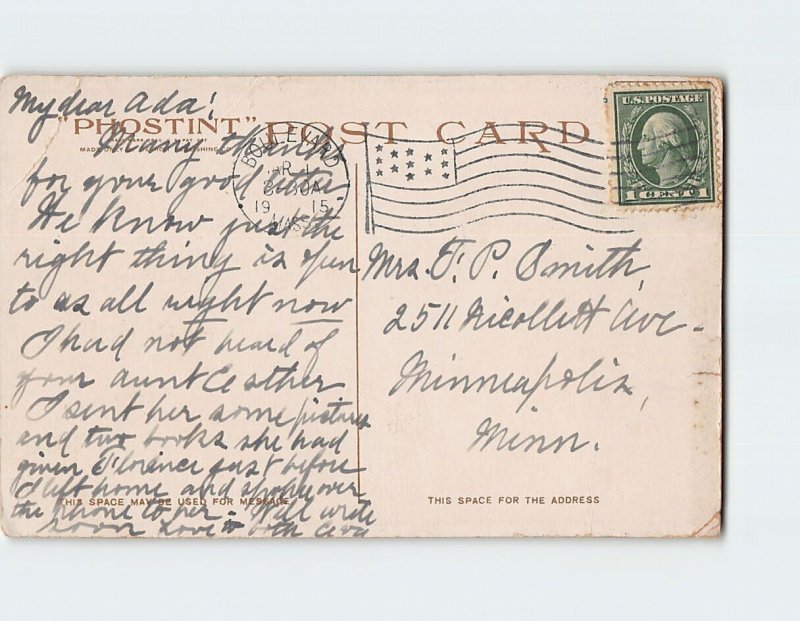 My dear Ada!
"PHOSTINT" POST CARD
MADE ONLY BY DETROIT PUBLISHING CO.
Many thanks
for your good letter
He know just the
right thing is
to us all right now
I had not heard of
your aunt Esther
I sent her some pictures
and two books she had
given Florence just before
I left home and spoke over
the phone to her - Will write
soon Love to both
THIS SPACE MAY BE USED FOR MESSAGE
BOULEVARD
8 30A
19 15
MASS.
U.S. POSTAGE
1 CENT 1
Mrs. F. P. Smith,
2511 Nicollett Ave.
Minneapolis,
Minn.
THIS SPACE FOR THE ADDRESS